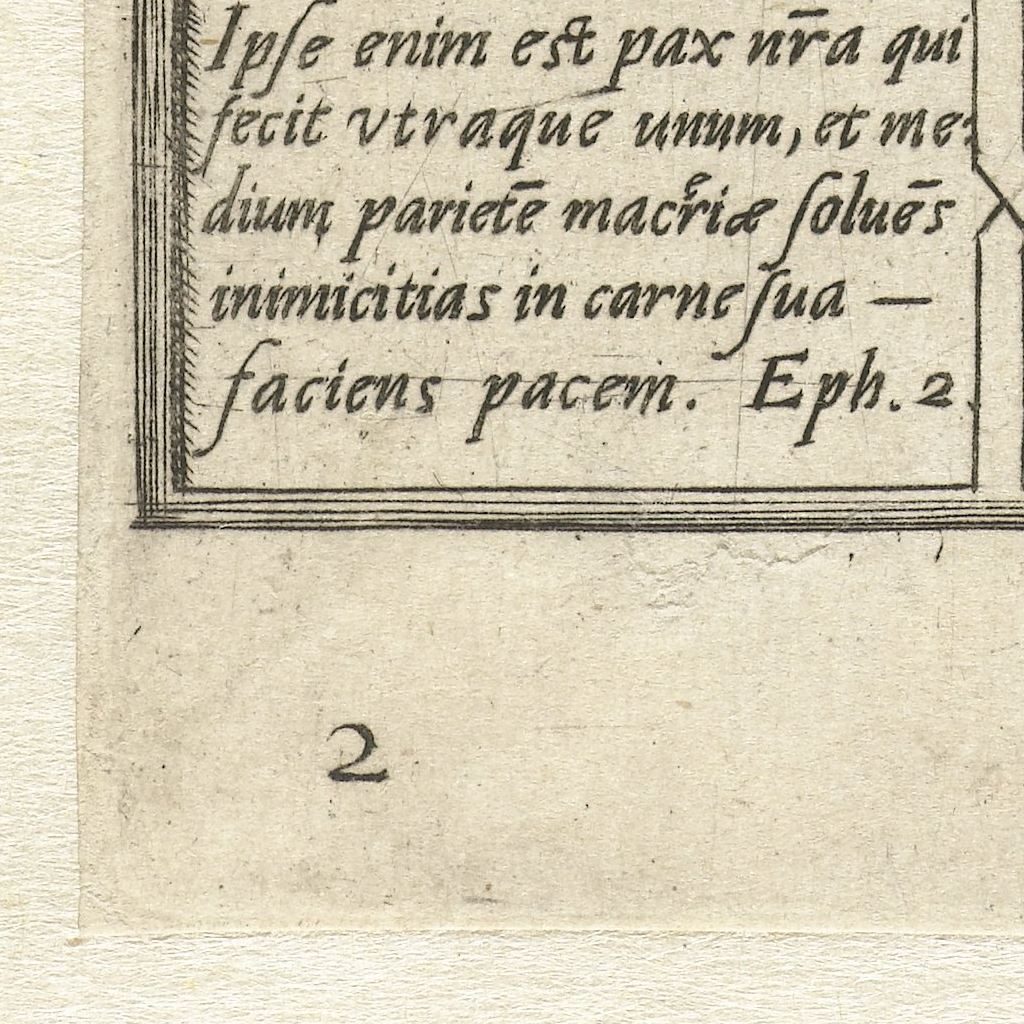 Ipſe enim est pax nr̄a qui
fecit vtraque unum, et me:
dium parietē macͤriæ ſoluēs
inimicitias in carne ſua —
faciens pacem. Eph. 2.
2